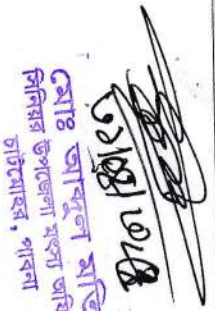 মোঃ আব্দুল মতি
সিনিয়র উপজেলা মৎস্য অফি
চাটমোহর, পাবনা